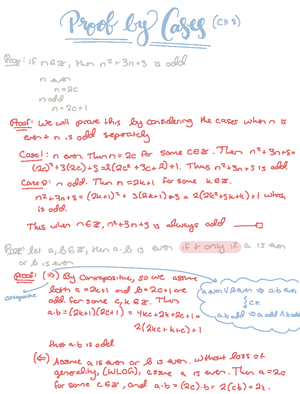 Proof by Cases (CH 3)
Prop: if n∈ℤ, then n²+3n+5 is odd
n even
n=2c
n odd
n=2c+1
Proof: We will prove this by considering the cases when n is
even & n is odd seperately
Case 1: n even. Then n=2c for some c∈ℤ. Then n²+3n+5=
(2c)²+3(2c)+5=2(2c²+3c+2)+1. Thus n²+3n+5 is odd.
Case 2: n odd. Then n=2k+1 for some k∈ℤ.
n²+3n+5=(2k+1)²+3(2k+1)+5=2(2k²+5k+4)+1 which
is odd.
Thus when n∈ℤ, n²+3n+5 is always odd
Prop: let a,b∈ℤ, then a·b is even if & only if a is even
or b is even
Proof: (⇒) By Contrapositive, so we assume
contrapositive
both a=2k+1 and b=2c+1 are
odd for some c,k∈ℤ. Then
a·b=(2k+1)(2c+1)=4kc+2k+2c+1=
2(2kc+k+c)+1
thus a·b is odd
a even V b even ⇒ a·b even
a·b odd ⇒ a odd ∧ b odd
(⇐) Assume a is even or b is even. Without loss of
generality, (WLOG), assume a is even. Then a=2c
for some c∈ℤ, and a·b=(2c)·b=2(cb)=2k.